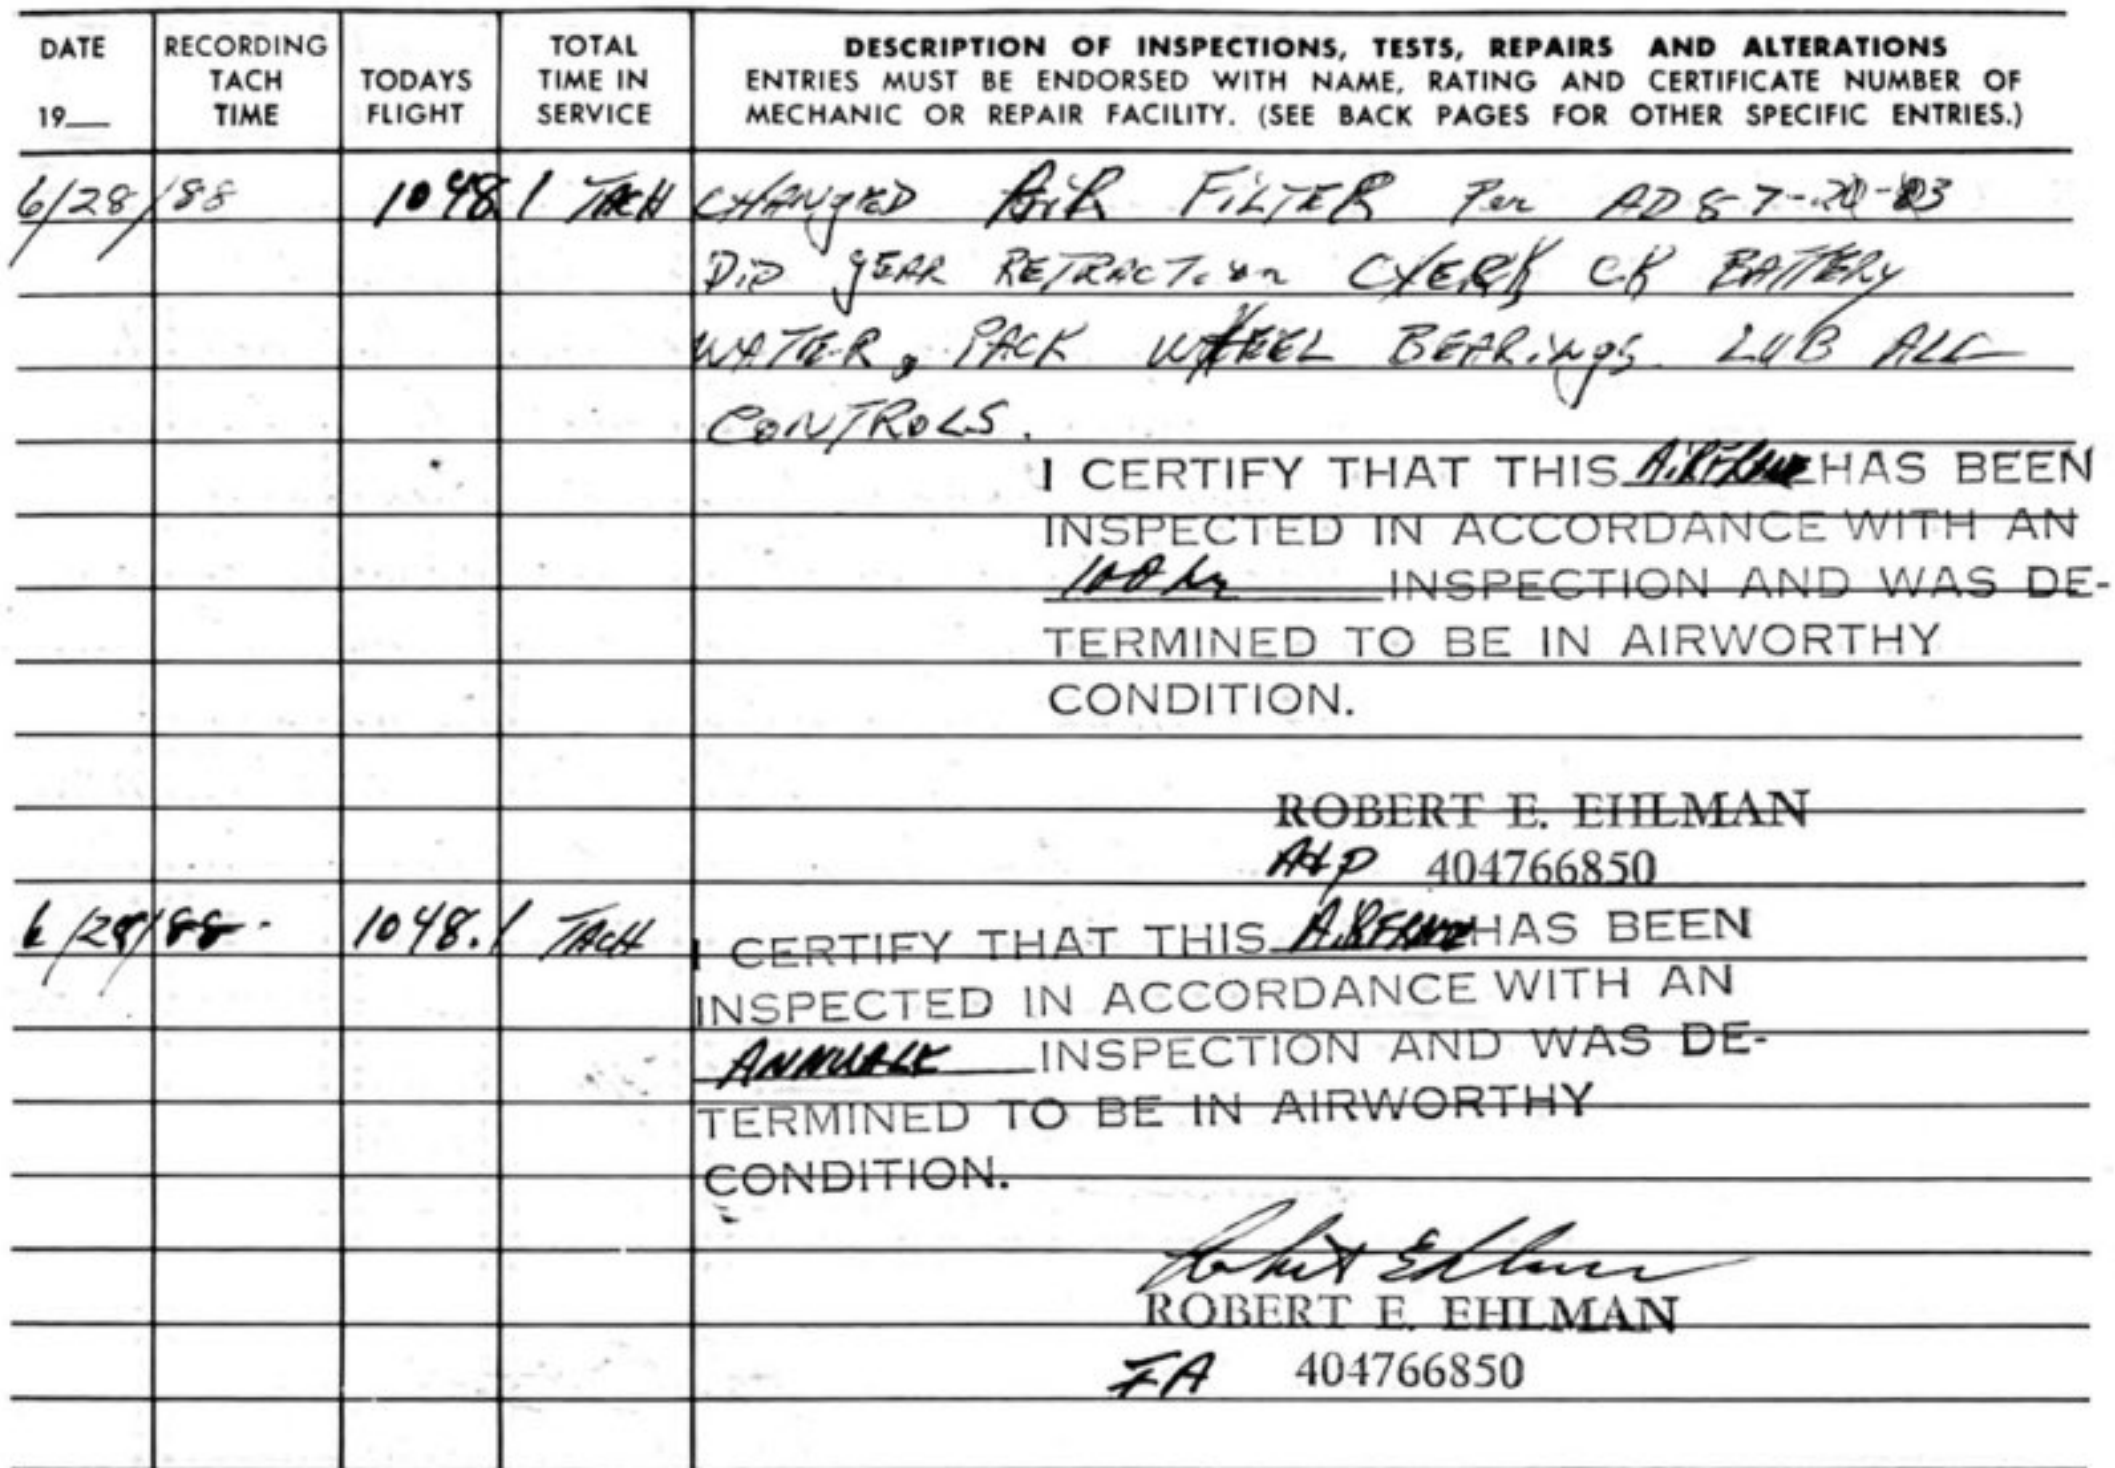 DATE 19__ RECORDING TACH TIME TODAYS FLIGHT TOTAL TIME IN SERVICE
DESCRIPTION OF INSPECTIONS, TESTS, REPAIRS AND ALTERATIONS
ENTRIES MUST BE ENDORSED WITH NAME, RATING AND CERTIFICATE NUMBER OF
MECHANIC OR REPAIR FACILITY. (SEE BACK PAGES FOR OTHER SPECIFIC ENTRIES.)
6/28/88 1048.1 TACH CHANGED AiR FiLTER Per AD 87-20-03
DiD gEAR RETRACTion CHERK CK BATTERY
WATER, PACK WHEEL BEARiNgS LUB ALL
CONTROLS.
I CERTIFY THAT THIS AiRFRAME HAS BEEN
INSPECTED IN ACCORDANCE WITH AN
100 hr INSPECTION AND WAS DE-
TERMINED TO BE IN AIRWORTHY
CONDITION.
ROBERT E. EHLMAN
A&P 404766850
6/28/88 1048.1 TACH I CERTIFY THAT THIS AiRFRAME HAS BEEN
INSPECTED IN ACCORDANCE WITH AN
ANNUALE INSPECTION AND WAS DE-
TERMINED TO BE IN AIRWORTHY
CONDITION.
Robert Ehlman
ROBERT E. EHLMAN
IA 404766850